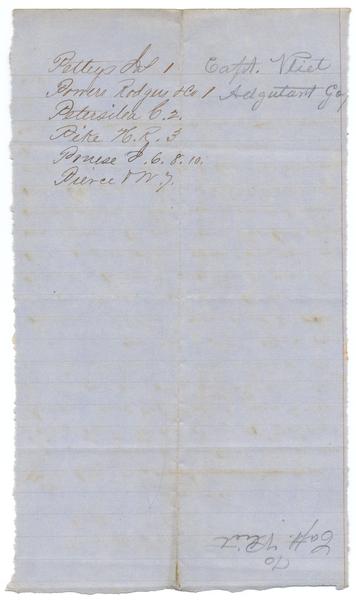 Pettys Jas 1 Capt. Vliet
Powers Rodgers & Co 1 Adgutant Ga
Petersilea C. 2.
Pike H. R. 3
Pouse J. 6. 8. 10.
Pierce J W 7.
To
Capt. Vliet